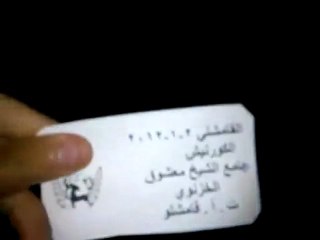 القامشلي ٢-١-٢٠١٢
الكورنيش
جامع الشيخ معشوق
الخزنوي
ت . ا . قامشلو